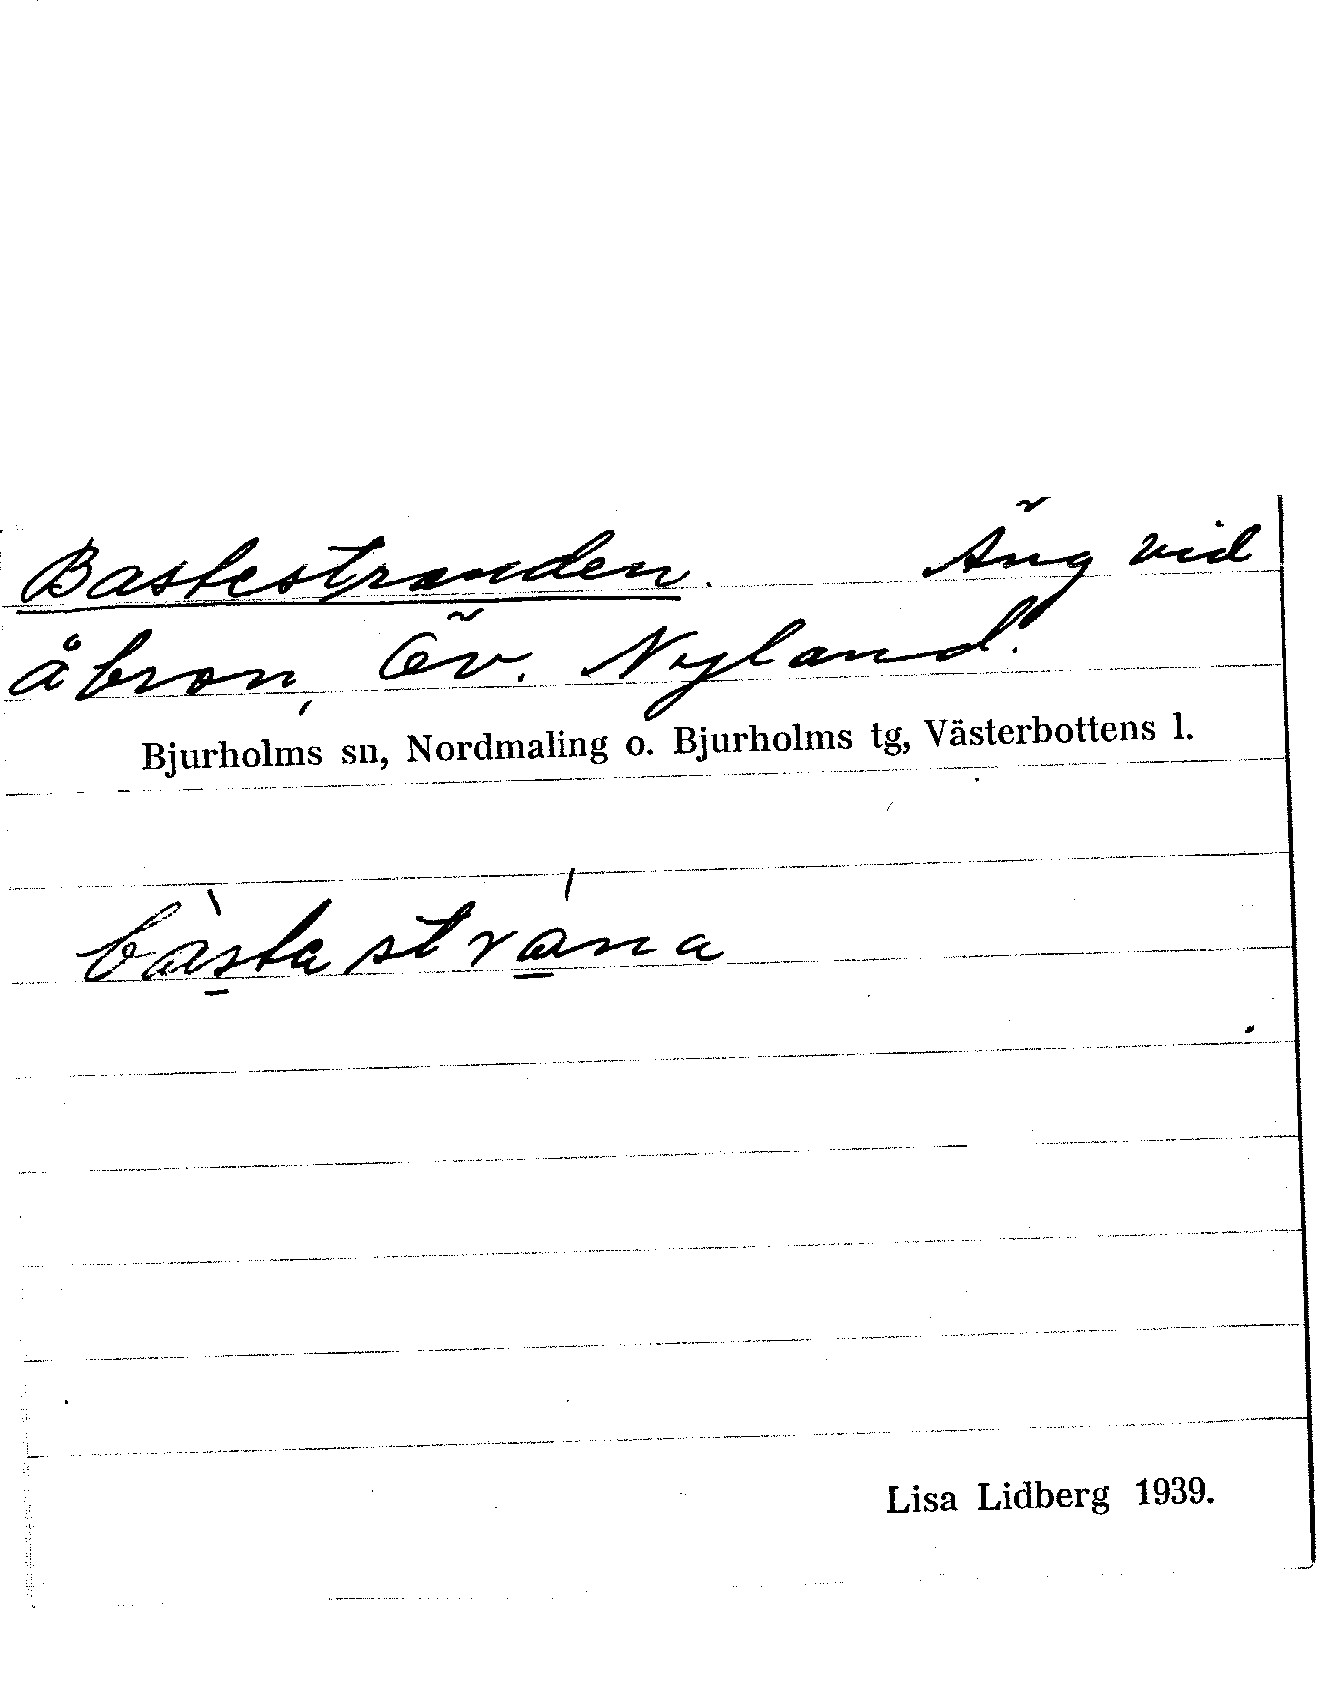 Bastestranden. Äng vid
åbron, Öv. Nyland.
Bjurholms sn, Nordmaling o. Bjurholms tg, Västerbottens l.
bàstastrána
Lisa Lidberg 1939.